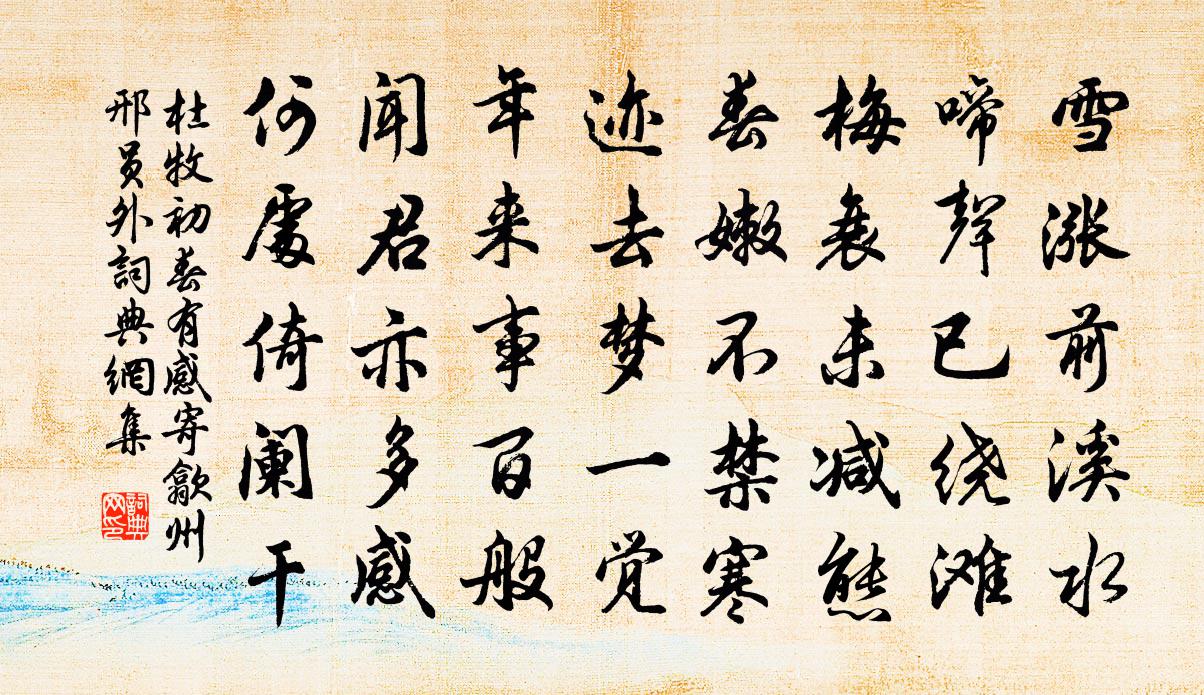 雪涨前溪水
啼聲已绕滩
梅衰未减態
春嫩不禁寒
迹去梦一觉
年来事百般
闻君亦多感
何處倚阑干
杜牧初春有感寄歙州
邢员外詞典網集
詞典
网印